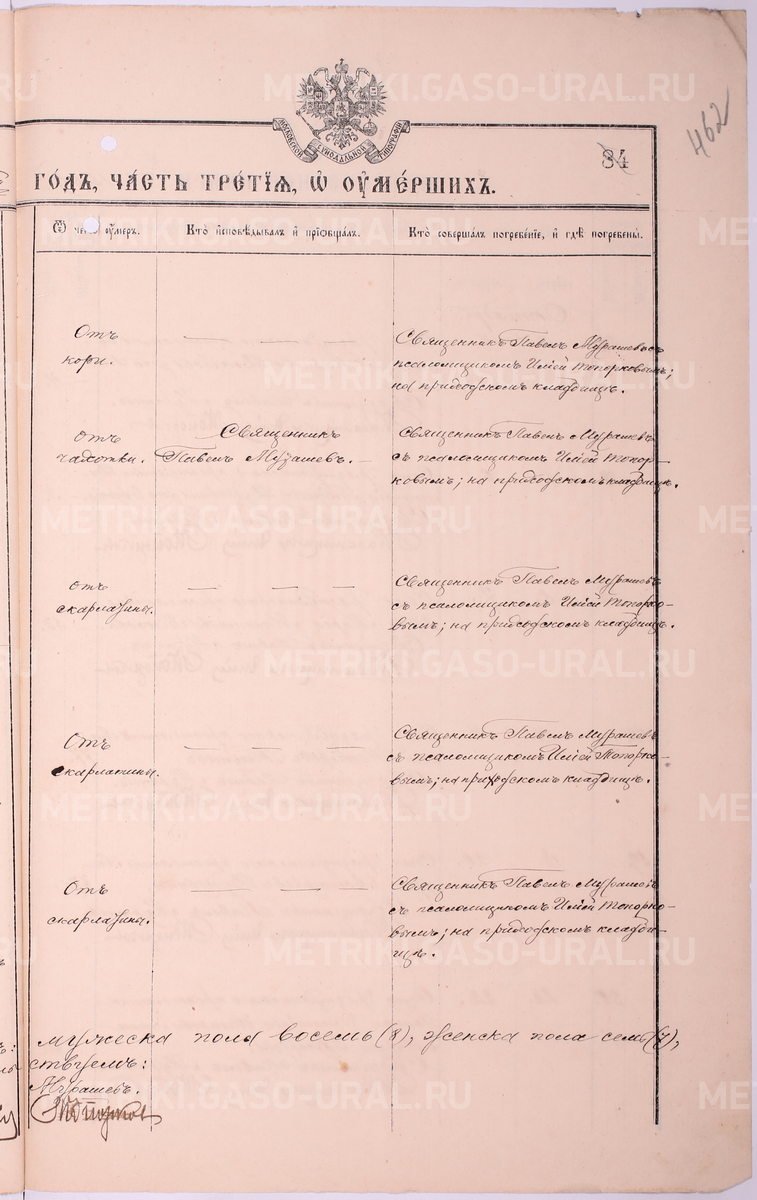 462
МОСКОВСКОЙ СѴНОДАЛЬНОЙ ТИПОГРАФІИ
84
ГО́ДЪ, ЧА́СТЬ ТРЕ́ТІѦ, Ѡ ОУМЕ́РШИХЪ.
Ѿ че оу҆́меръ. Кто̀ и҆сповѣ́дывалъ и҆ прїѡбща́лъ. Кто̀ соверша́лъ погребе́нїе, и҆ гдѣ̀ погребены̀.
Отъ
кори.
— — —
Священникъ Павелъ Мурашевъ съ
псаломщикомъ Иліей Топорковымъ;
на приходскомъ кладбищѣ.
отъ
чахотки.
Священникъ
Павелъ Мурашевъ. —
Священникъ Павелъ Мурашевъ
съ псаломщикомъ Иліей Топор-
ковымъ; на приходскомъ кладбищѣ.
отъ
скарлатины.
— — —
Священникъ Павелъ Мурашевъ
съ псаломщикомъ Иліей Топорко-
вымъ; на приходскомъ кладбищѣ.
Отъ
скарлатины.
— — —
Священникъ Павелъ Мурашевъ
съ псаломщикомъ Иліей Топорко-
вымъ; на приходскомъ кладбищѣ.
Отъ
скарлатины.
— — —
Священникъ Павелъ Мурашевъ
съ псаломщикомъ Иліей Топорко-
вымъ; на приходскомъ кладби-
щѣ.
мужеска пола восемь (8), женска пола семь (7),
ствуемъ:
Мурашевъ.
METRIKI.GASO-URAL.RU